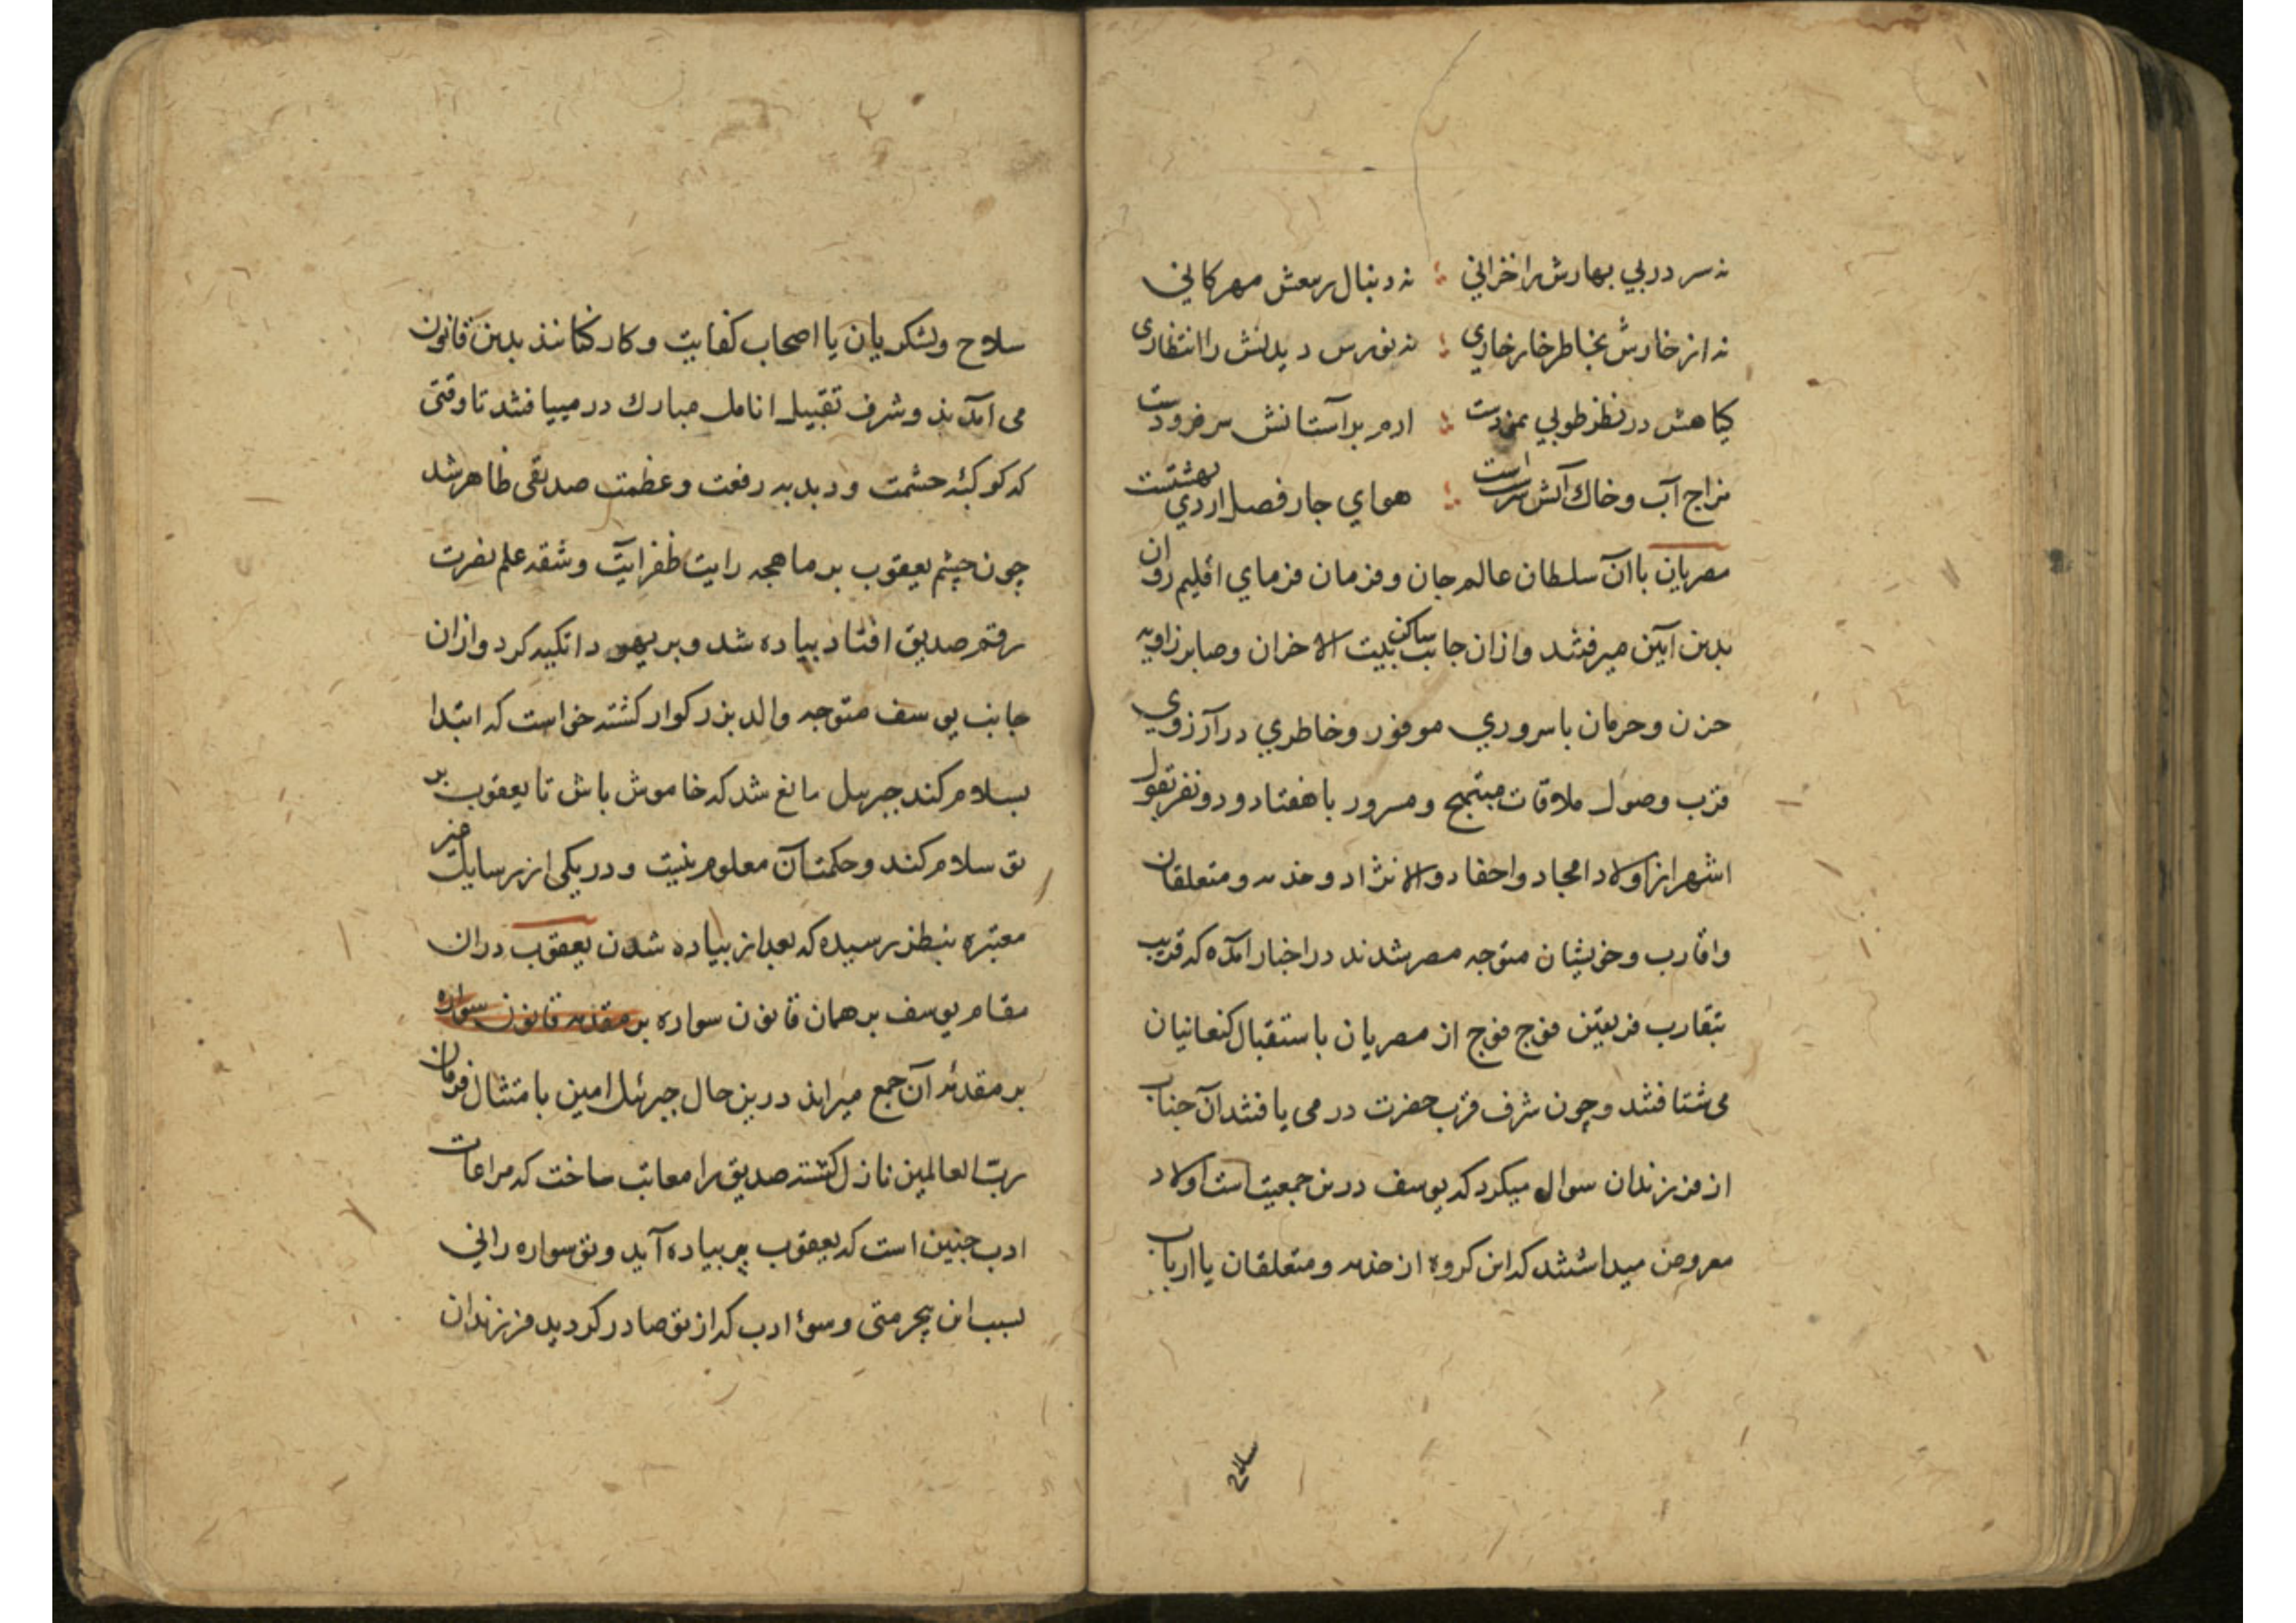 نه سر در پي بهارش را خزاني ؛ نه دنبال ربيعش مهركاني
نه از خارش بخاطر خار خاري ؛ نه نورس ديدنش را انتظاری
كياهش در نظر طوبي نمودست ؛ ارم بر آستانش سر فرودست
مزاج آب و خاك آتش سرشت است ؛ هواي چار فصل ارديبهشتست
مصريان با آن سلطان عالم جان و فرمان فرماي اقليم روان
بدين آيين ميرفتند و ازان جانب ساكن بيت الاحزان و صابر زاويه
حزن و حرمان با سروري موفور و خاطري در آرزوي
قرب وصول ملاقات مبتهج و مسرور با هفتاد و دو نفر بقول
اشهر از اولاد امجاد و احفاد والا نژاد و خدمه و متعلقان
و اقارب و خويشان متوجه مصر شدند در اخبار آمده كه قريب
بتقارب فريقين فوج فوج از مصريان باستقبال كنعانيان
می شتافتند و چون شرف قرب حضرت در می يافتند آن جناب
از فرزندان سوال ميكرد كه يوسف درين جمعيت است اولاد
معروض ميداشتند كه اين كروه از خدمه و متعلقان يا ارباب
سلاح
سلاح و لشكريان يا اصحاب كفايت و كاركنانند بدين قانون
می آمدند و شرف تقبيل انامل مبارك در مييافتند تا وقتی
كه كوكبۀ حشمت و دبدبه رفعت و عظمت صديقی ظاهر شد
چون چشم يعقوب بر ماهچه رايت ظفر آيت و شقه علم نصرت
رقم صديق افتاد پياده شد و بر يهودا تكيه كرد و ازان
جانب يوسف متوجه والد بزركوار كشته خواست كه ابتدا
بسلام كند جبرييل مانع شد كه خاموش باش تا يعقوب بر
تو سلام كند و حكمت آن معلوم نيست و در يكی از رسايل
معتبره بنظر رسيده كه بعد از پياده شدن يعقوب دران
مقام يوسف بر همان قانون سواره بر مقدمه قانون سواره
بر مقدمۀ آن جمع ميراند درين حال جبرئيل امين بامتثال فرمان
ربّ العالمين نازل كشته صديق را معاتب ساخت كه مراعات
ادب چنين است كه يعقوب پير پياده آيد و تو سواره راني
بسبب اين بيحرمتی و سوء ادب كه از تو صادر كرديد فرزندان